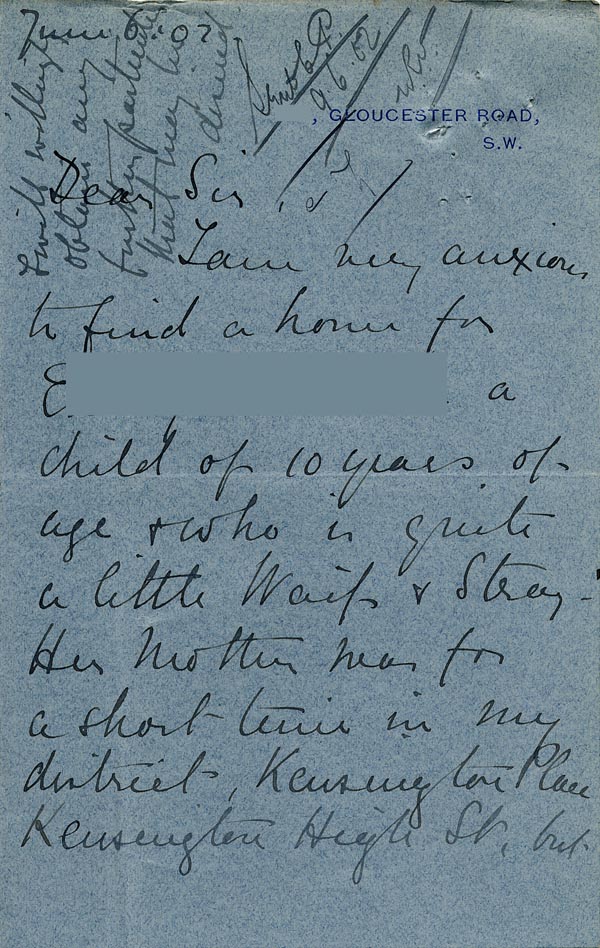 June 6. 02
, GLOUCESTER ROAD,
S.W.
9.6.02
I will willingly
obtain any
further particulars
that may be
desired
Dear Sir,
I am very anxious
to find a home for
E. a
child of 10 years of
age & who is quite
a little Waif & Stray -
Her Mother was for
a short time in my
district, Kensington Place
Kensington High St, but